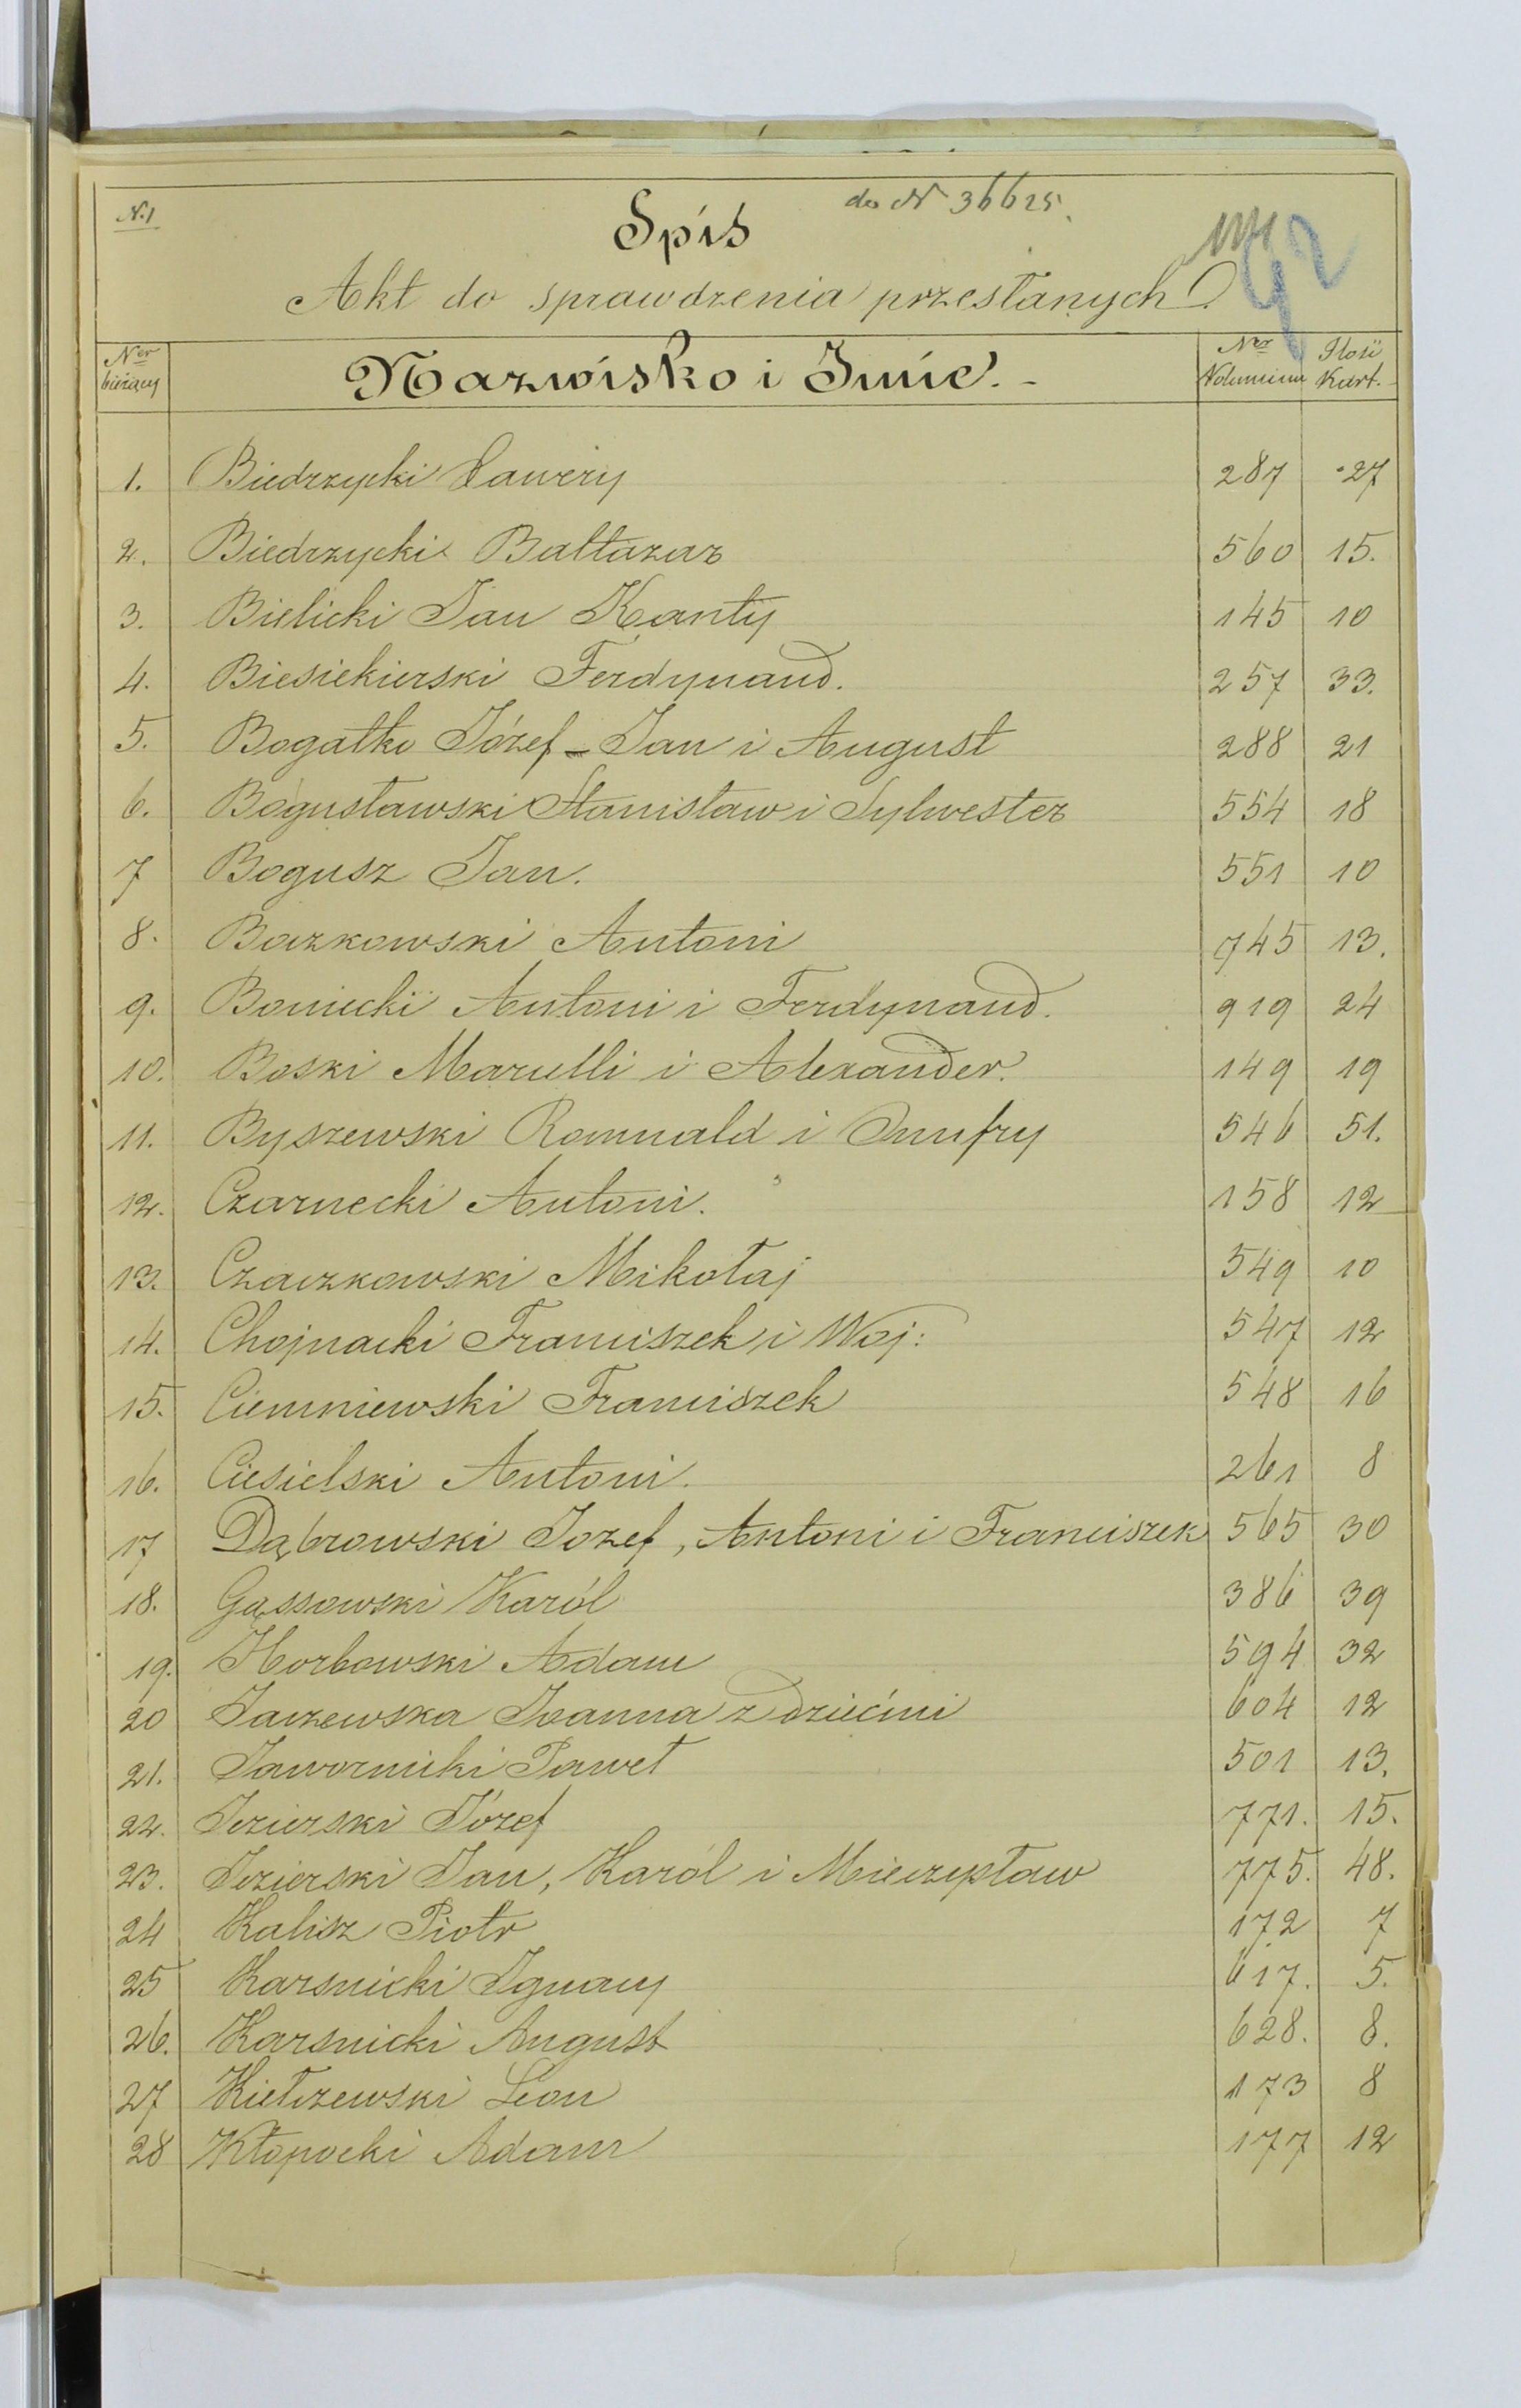 N. 1
do N 36625.
Spis
92
Akt do sprawdzenia przesłanych.
Ner bieżący Nazwisko i Imie. - Ner Volumina Ilość Kart.
1. Biedrzycki Xawery 287 27
2. Biedrzycki Baltazar 560 15.
3. Bielicki Jan Kanty 145 10
4. Biesiekierski Ferdynand. 257 33.
5. Bogatko Józef - Jan i August 288 21
6. Bogusławski Stanisław i Sylwester 554 18
7 Bogusz Jan. 551 10
8. Bozkowski Antoni 745 13.
9. Boniecki Antoni i Ferdynand. 919 24
10. Boski Marulli i Alexander. 149 19
11. Byszewski Romuald i Onufry 546 51.
12. Czarnecki Antoni. 158 12
13. Czaczkowski Mikołaj 549 10
14. Chojnacki Franciszek i Woj: 547 12
15. Ciemniewski Franciszek 548 16
16. Ciesielski Antoni. 261 8
17 Dąbrowski Jozef, Antoni i Franciszek 565 30
18. Gąssowski Karól 386 39
19. Horbowski Adam 594 32
20 Jaczewska Joanna z dziećmi 604 12
21. Jawornicki Paweł 501 13.
22. Jezierski Józef 771. 15.
23. Jezierski Jan, Karól i Mieczysław 775. 48.
24 Kalisz Piotr 172 7
25 Karsnicki Ignacy 617. 5.
26. Karsnicki August 628. 8.
27 Kiełczewski Leon 173 8
28 Kłopocki Adam 177 12